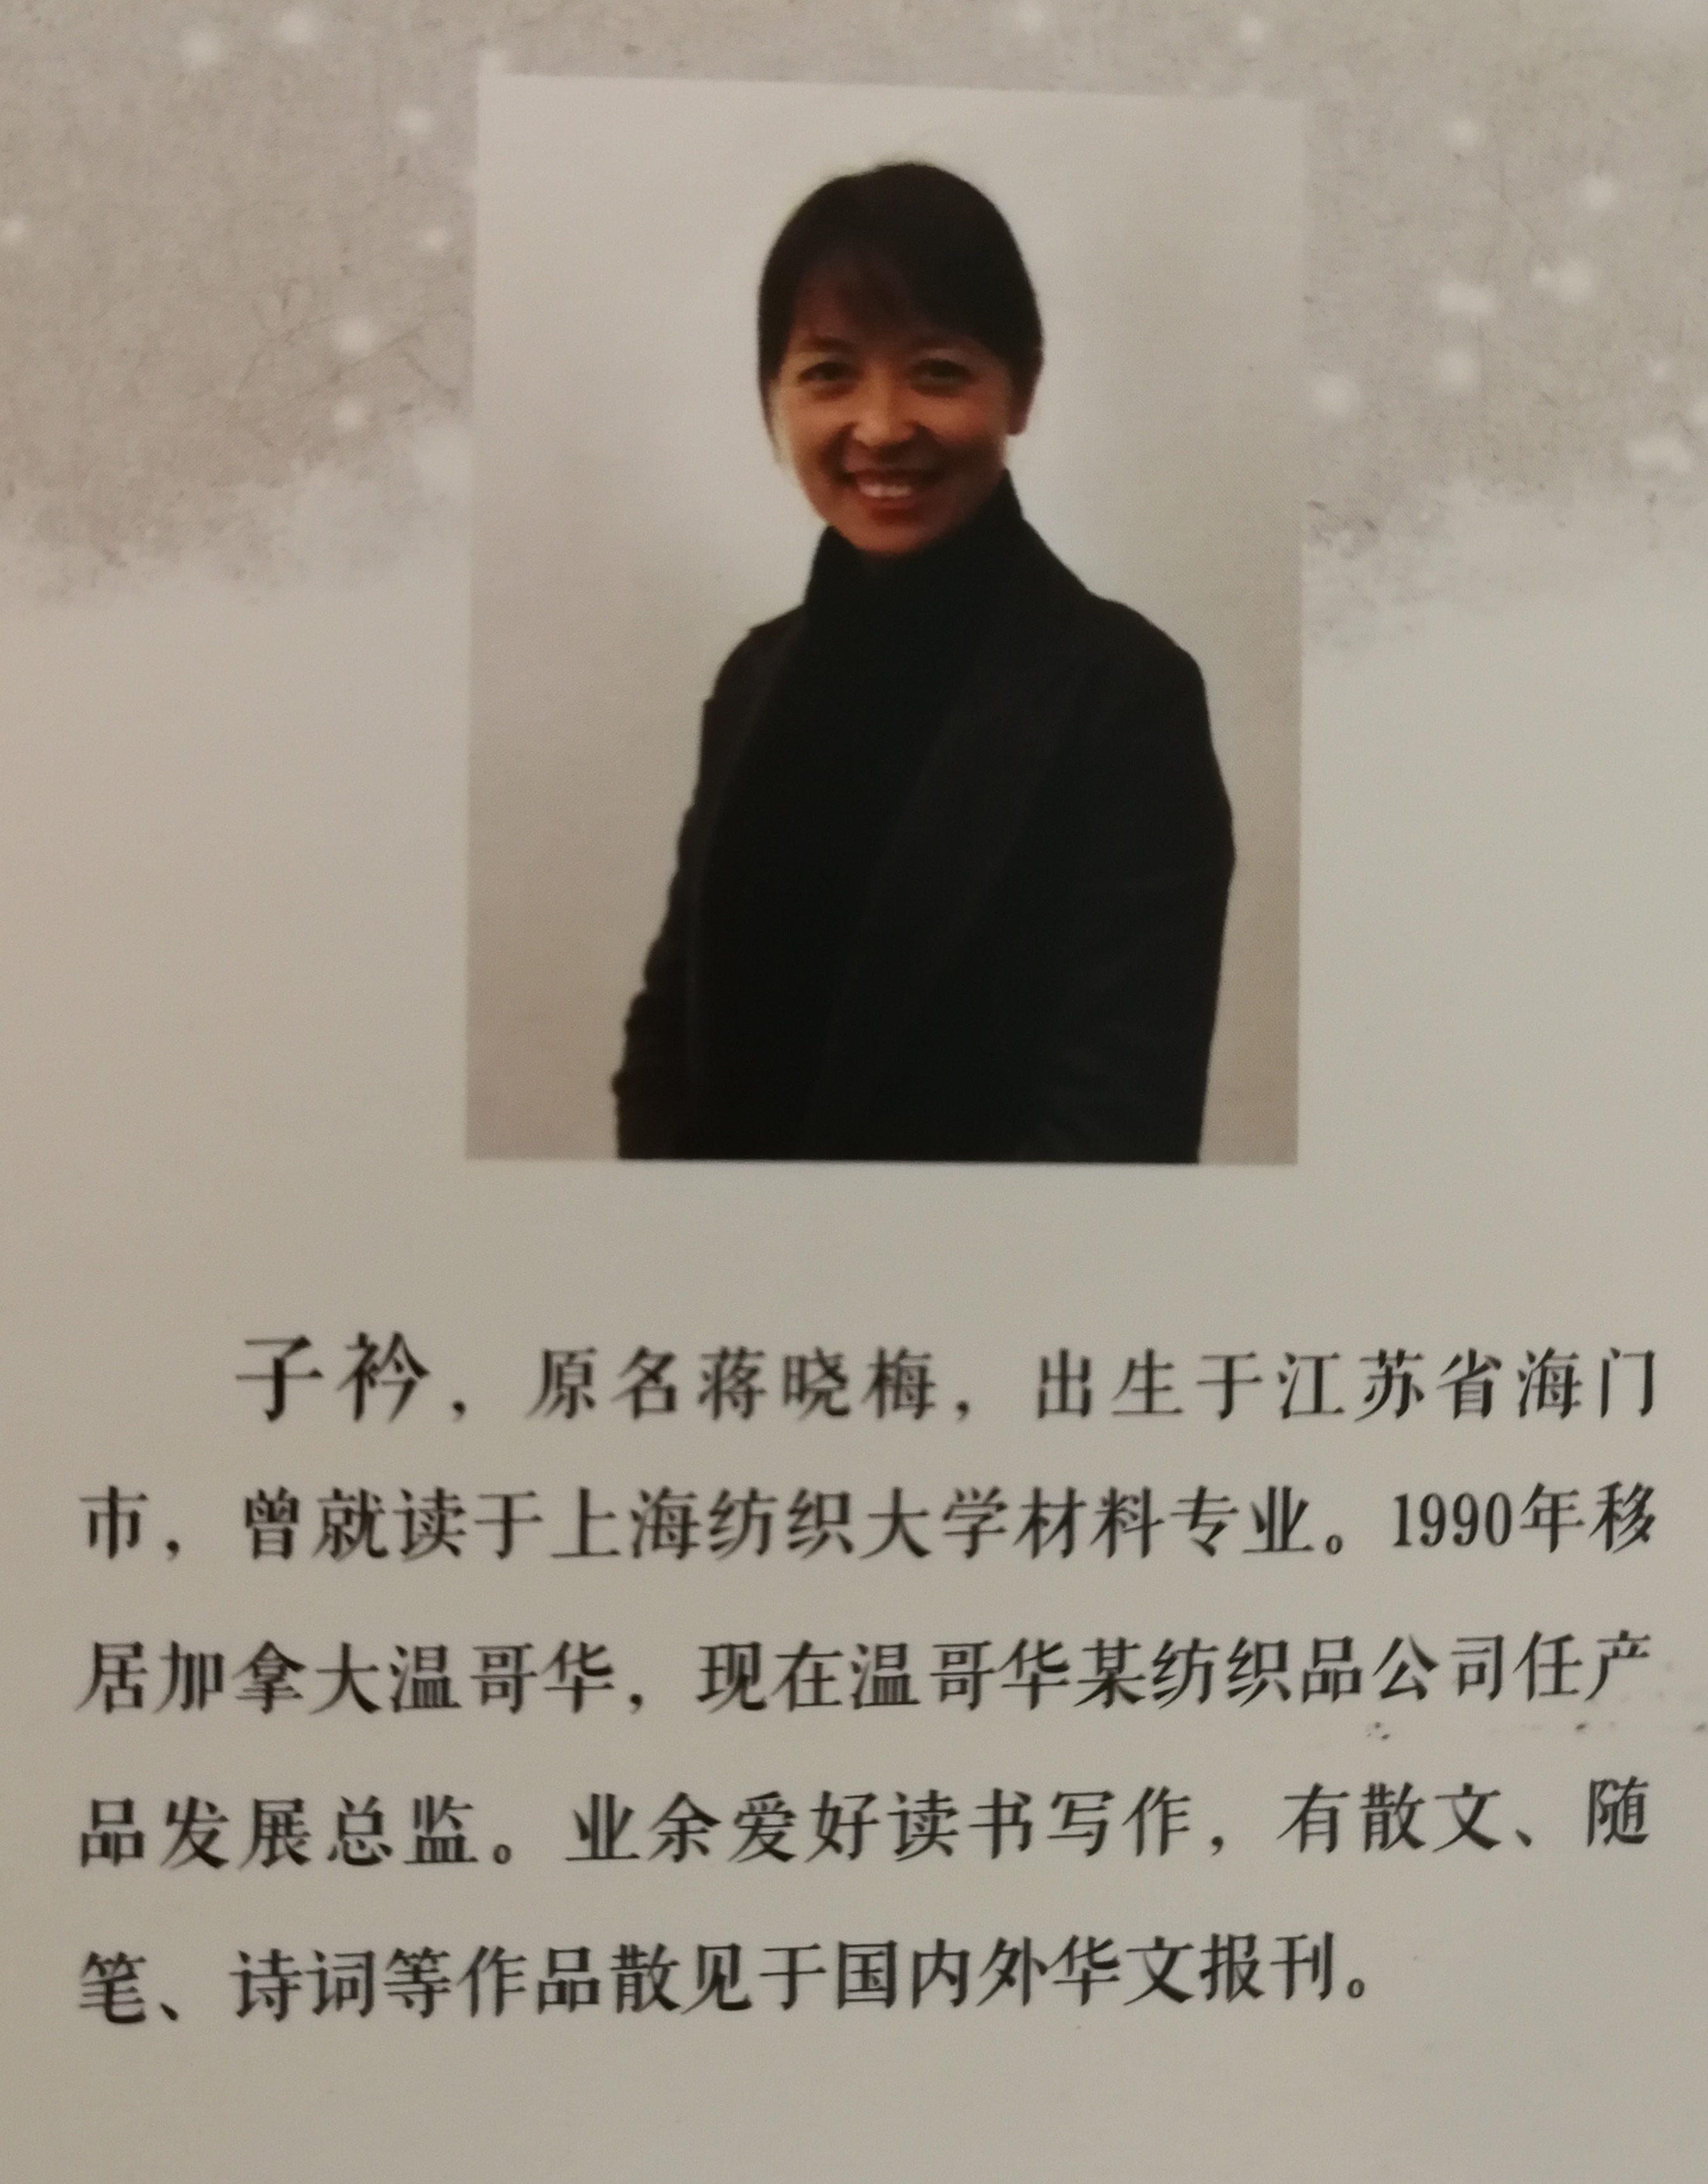 子衿，原名蒋晓梅，出生于江苏省海门
市，曾就读于上海纺织大学材料专业。1990年移
居加拿大温哥华，现在温哥华某纺织品公司任产
品发展总监。业余爱好读书写作，有散文、随
笔、诗词等作品散见于国内外华文报刊。